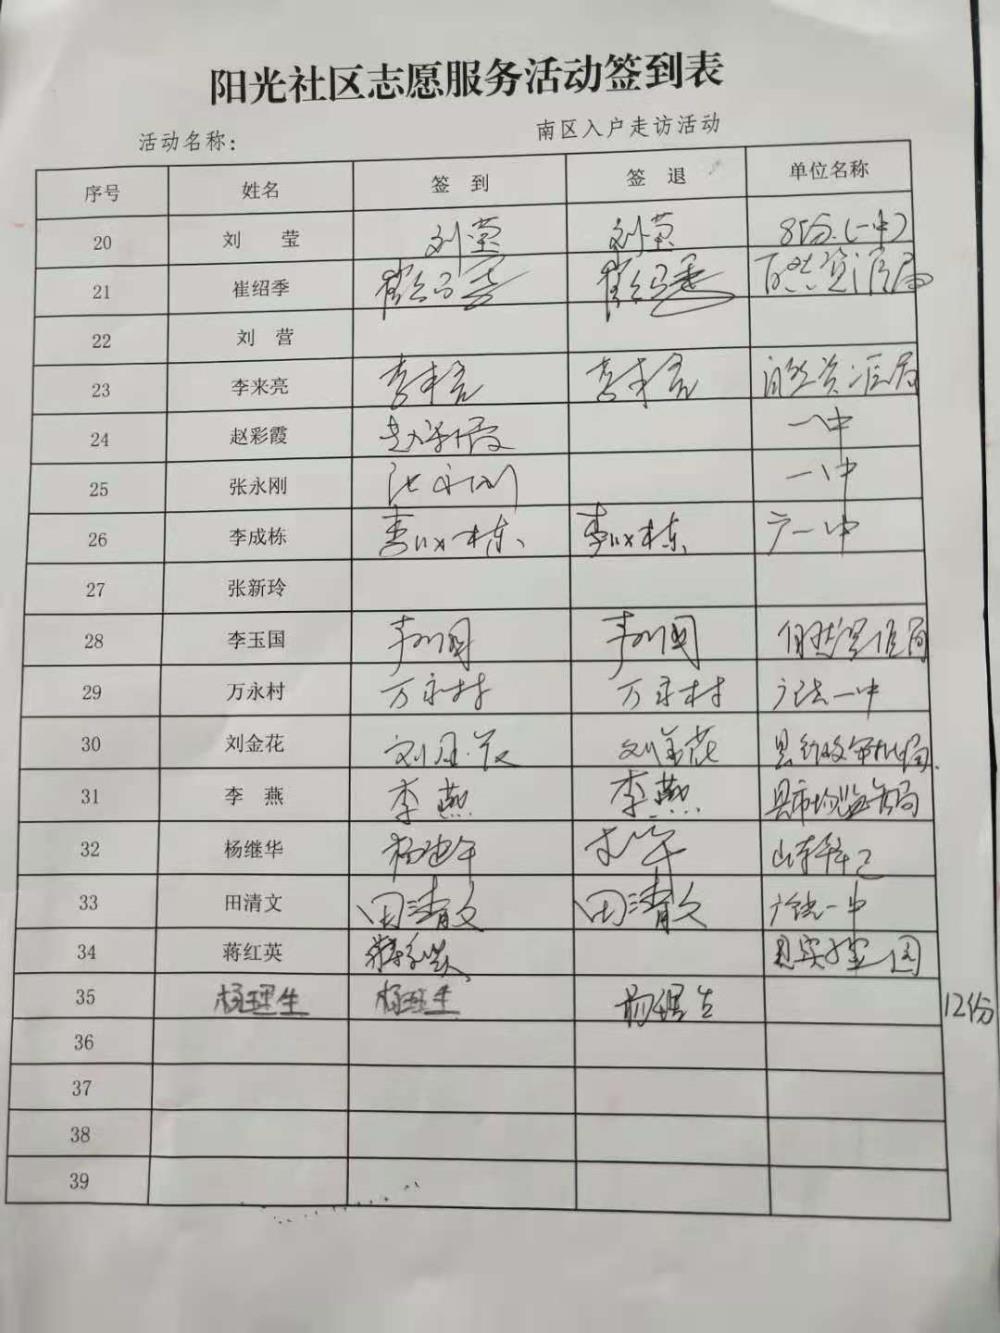 阳光社区志愿服务活动签到表
活动名称: 南区入户走访活动
序号 姓名 签 到 签 退 单位名称
20 刘 莹 刘莹 刘莹 8份.(一中)
21 崔绍季 崔绍季 崔绍季 自然资源局
22 刘 营
23 李来亮 李来亮 李来亮 自然资源局
24 赵彩霞 赵彩霞 一中
25 张永刚 张永刚 一中
26 李成栋 李成栋 李成栋 广一中
27 张新玲
28 李玉国 李玉国 李玉国 自然资源局
29 万永村 万永村 万永村 广饶一中
30 刘金花 刘金花 刘金花 县行政审批局
31 李 燕 李燕 李燕 县市场监管局
32 杨继华 杨继华 山东
33 田清文 田清文 田清文 广饶一中
34 蒋红英 蒋红英 县实验
35 杨理生 杨理生 杨理生 12份
36
37
38
39